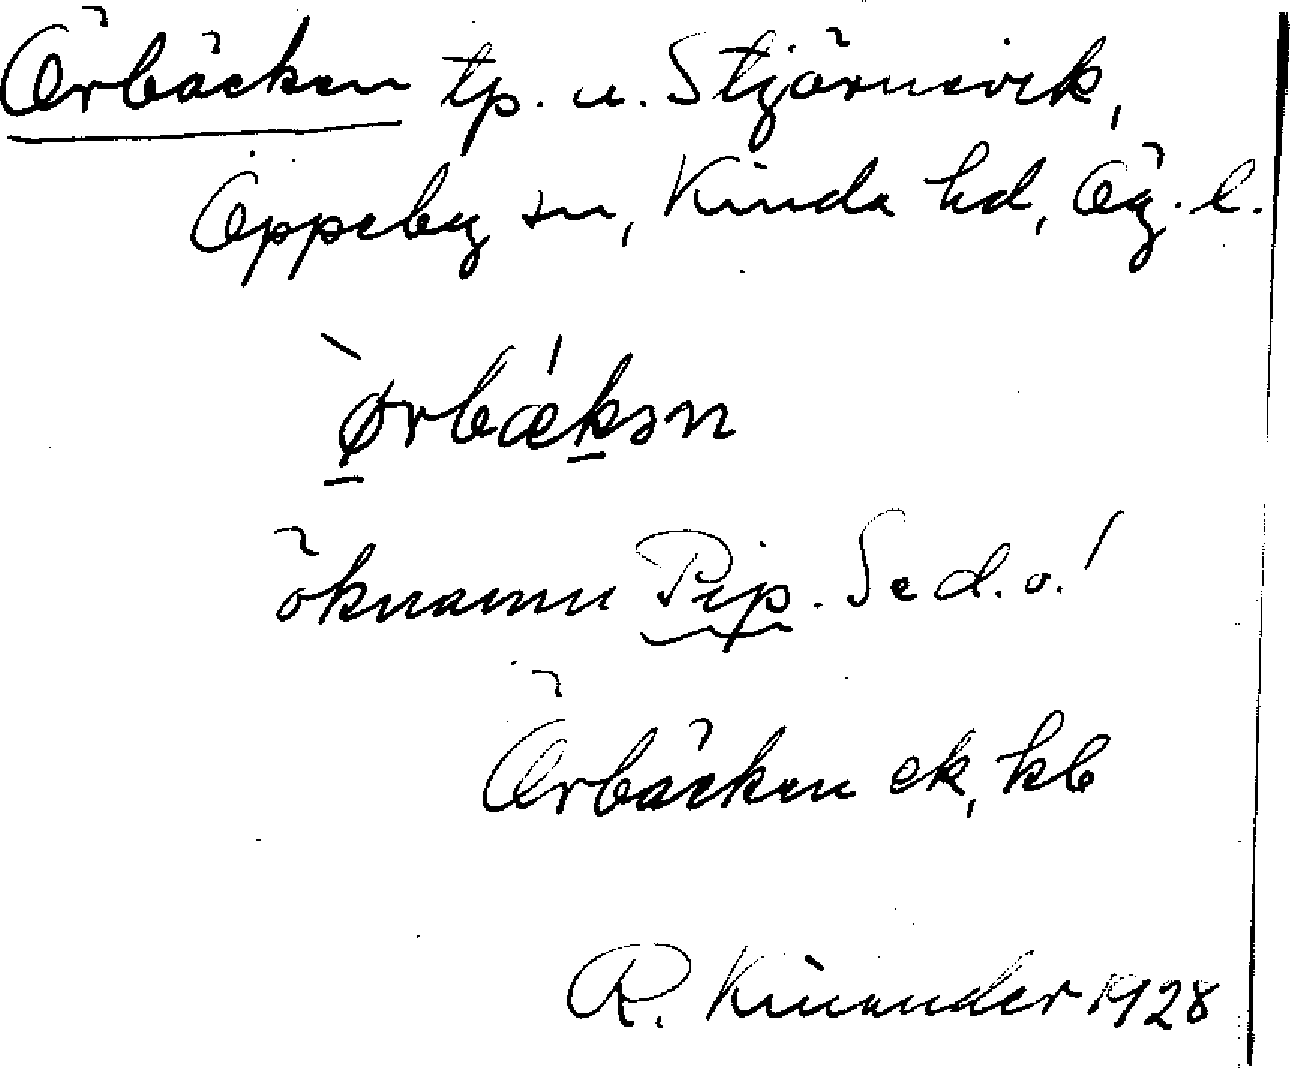 Örbäcken tp. u. Stjärnevik,
Oppeby sn, Kinda hd, Ög. l.
ø̀rbǽkən
öknamn Pip. Se d. o.!
Örbäcken ek, kb
R. Kinander 1928